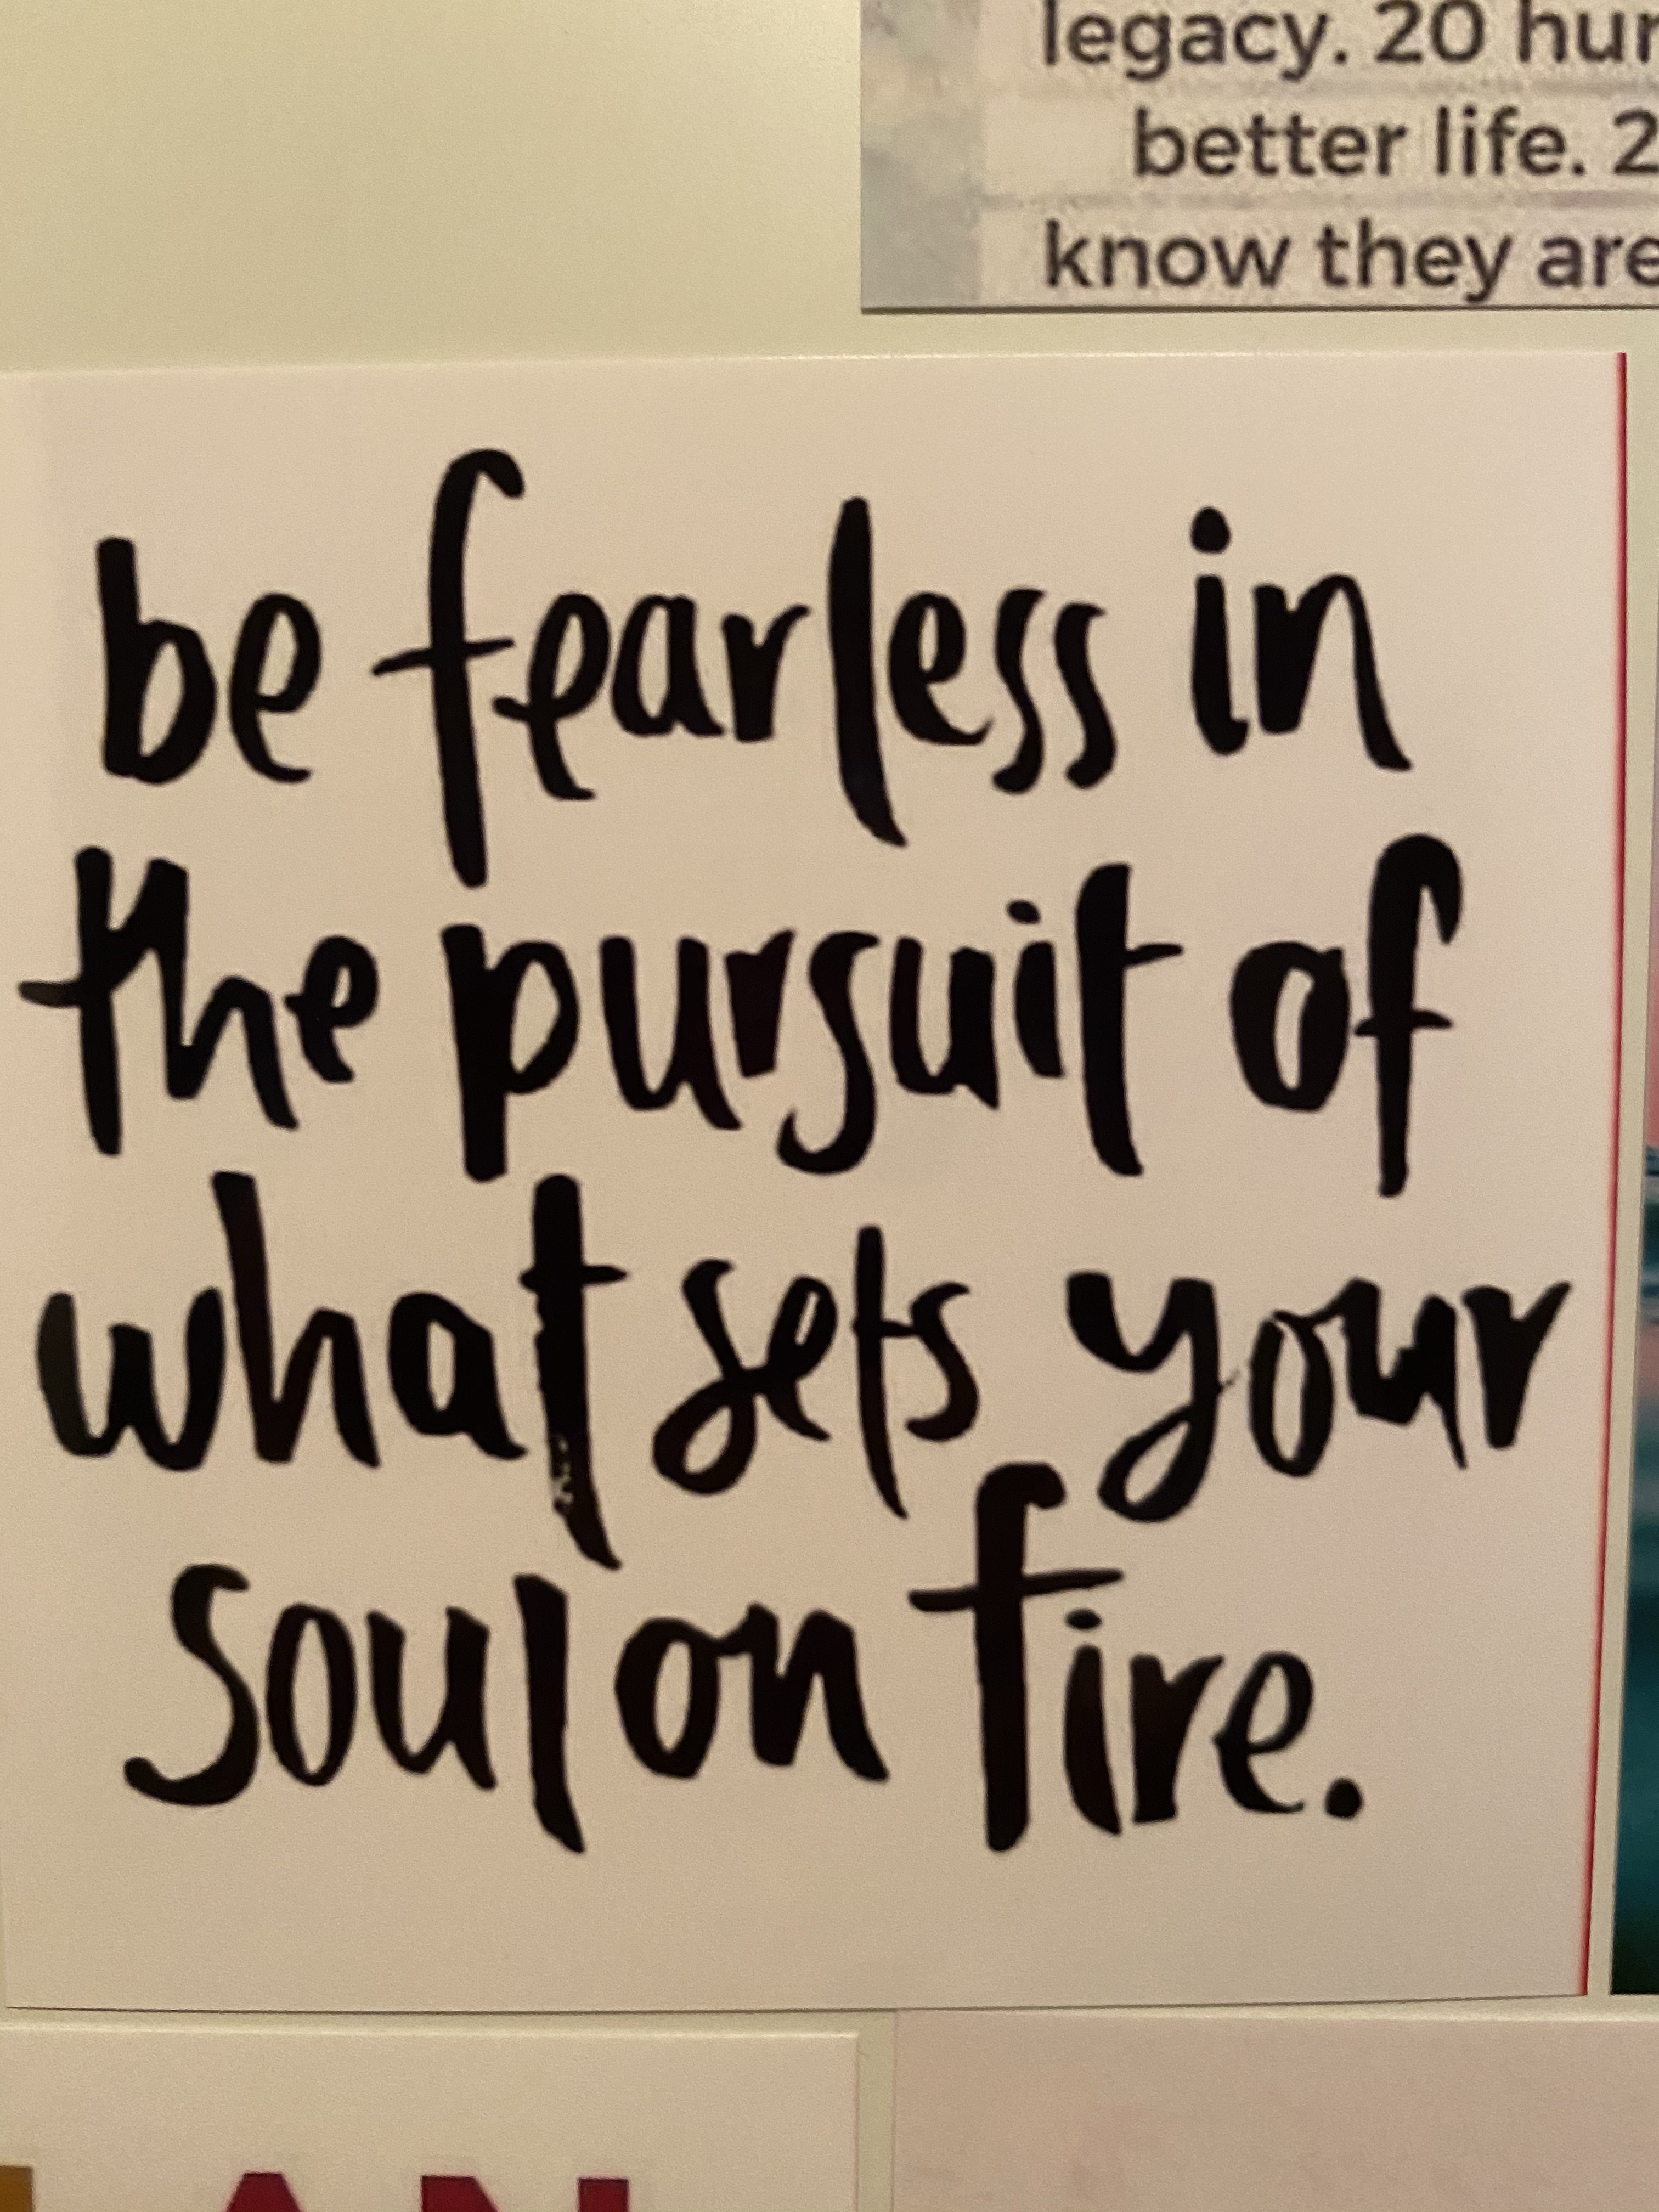 legacy. 20 hur
better life. 2
know they are
be fearless in
the pursuit of
what sets your
soul on fire.
AN